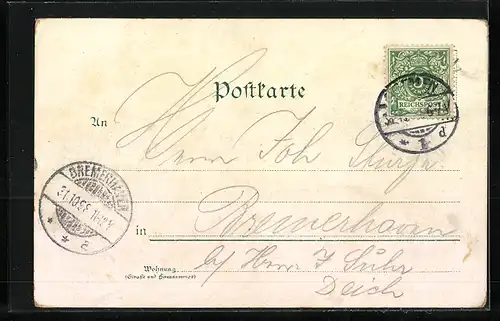 Postkarte
REICHSPOST
An
Herrn Joh
BREMERHAVEN
31.10.98
* a
* 1 d
in Bremerhaven
Wohnung
(Straße und Hausnummer)
b/ Herrn J Suhr
Deich